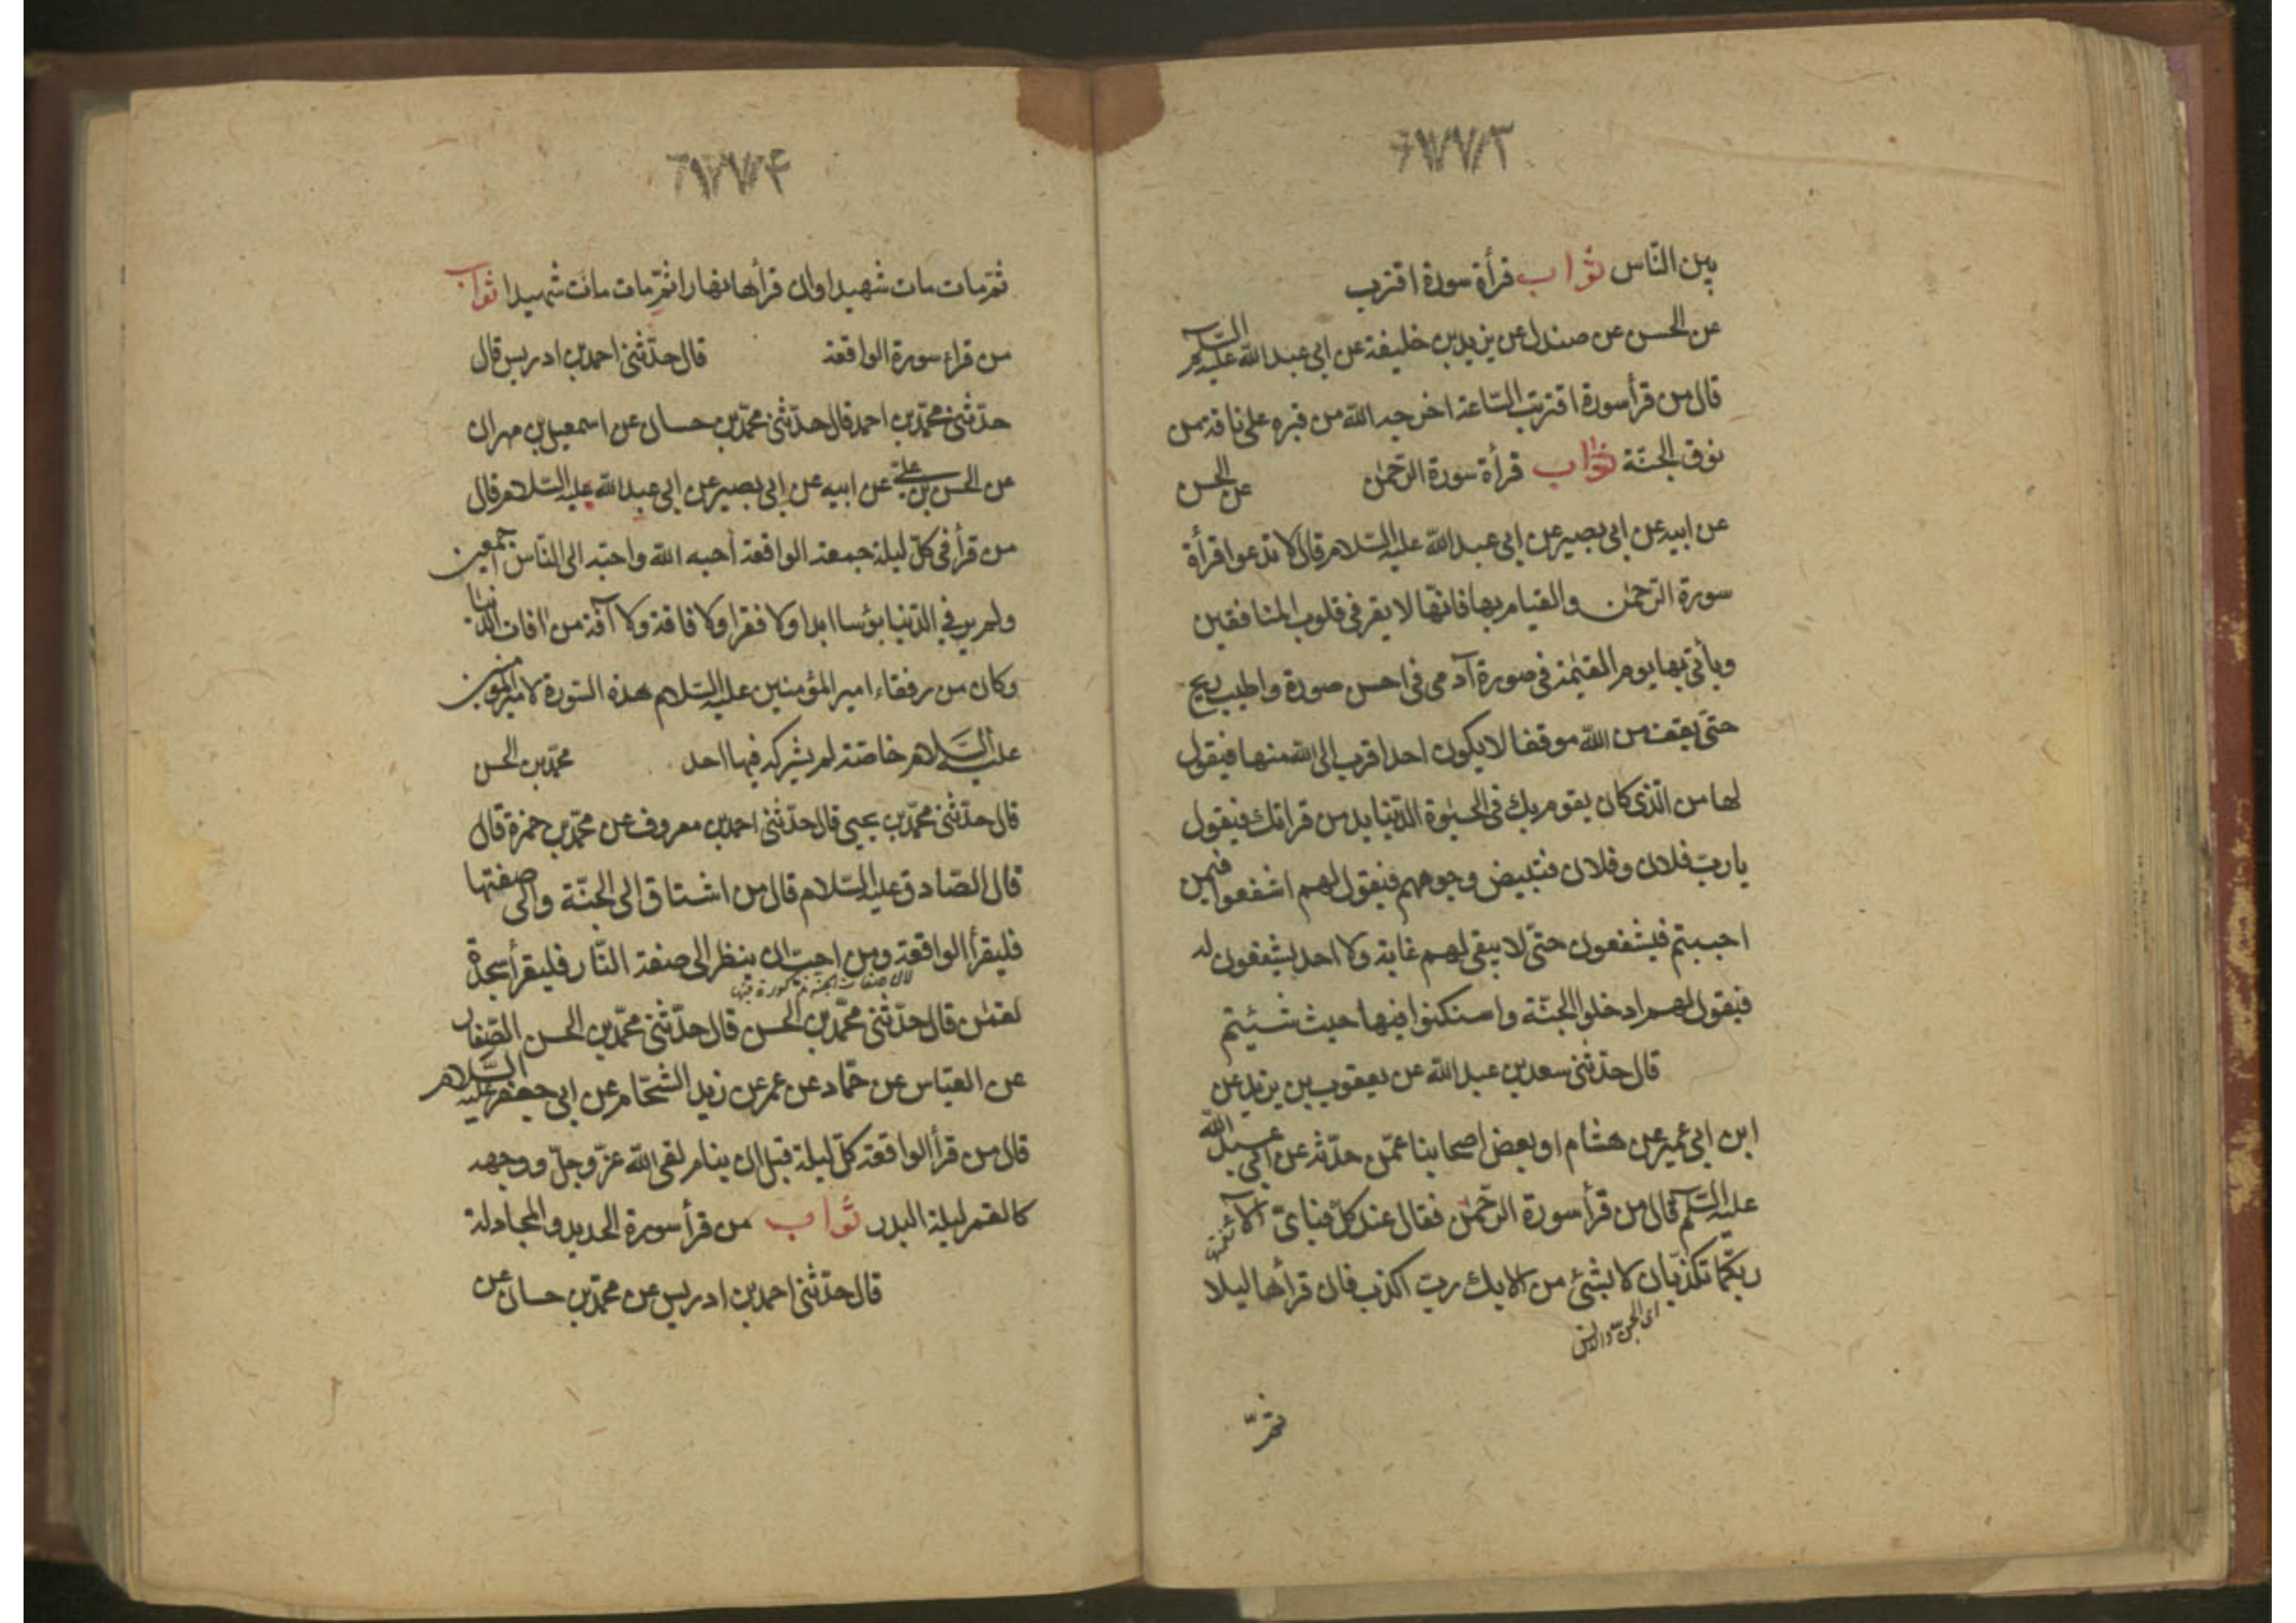 بين النّاس ثواب قرأة سورة اقترب
عن الحسن عن صندل عن يزيد بن خليفة عن ابي عبد الله عليه السلم
قال من قرأ سورة اقتربت السّاعة اخرجه الله من قبره على ناقة من
نوق الجنّة ثواب قرأة سورة الرّحمن عن الحسن
عن ابيه عن ابي بصير عن ابي عبد الله عليه السّلام قال لا تدعوا قرأة
سورة الرّحمن والقيام بها فانّها لا يقر في قلوب المنافقين
ويأتي بها يوم القيٰمة في صورة آدمي في احسن صورة واطيب ريح
حتّى يقف من الله موقفا لا يكون احد اقرب الى الله منها فيقول
لها من الّذي كان يقوم بك في الحيٰوة الدّنيا يد من قراتك فيقول
يا ربّ فلان وفلان فتبيض وجوههم فيقول لهم اشفعوا فيمن
احببتم فيشفعون حتّى لا يبقى لهم غاية ولا احد يشفعون له
فيقول لهم ادخلوا الجنّة واسكنوا فيها حيث شئتم
قال حدّثني سعد بن عبد الله عن يعقوب بن يزيد عن
ابن ابي عمير عن هشام او بعض اصحابنا عمّن حدّثه عن ابي عبد الله
عليه السّلم قال من قرأ سورة الرّحمن فقال عند كلّ فباىّ آلاء
ربّكما تكذّبان لا بشئ من آلايك ربّ اكذب فان قرأها ليلا
اى الجن والانس
ثمّ
ثمّ مات مات شهيدا وان قرأها نهارا ثمّ مات مات شهيدا ثواب
من قراء سورة الواقعة قال حدّثني احمد بن ادريس قال
حدّثني محمّد بن احمد قال حدّثني محمّد بن حسان عن اسمعيل بن مهران
عن الحسن بن علي عن ابيه عن ابي بصير عن ابي عبد الله عليه السّلام قال
من قرأ في كلّ ليلة جمعة الواقعة احبه الله واحبّه الى النّاس اجمعين
ولم ير في الدّنيا بؤسا ابدا ولا فقرا ولا فاقة ولا آفة من افات الدّنيا
وكان من رفقاء امير المؤمنين عليه السّلام هذه السّورة لامير المؤمنين
عليه السّلام خاصّة لم يشركه فيها احد محمّد بن الحسن
قال حدّثني محمّد بن يحيى قال حدّثني احمد بن معروف عن محمّد بن حمزة قال
قال الصّادق عليه السّلام قال من اشتاق الى الجنّة والى صفتها
فليقرأ الواقعة ومن احبّ ان ينظر الى صفة النّار فليقرأ سجدة
لان صفات الجنة مذكورة فيها
لقمٰن قال حدّثني محمّد بن الحسن قال حدّثني محمّد بن الحسن الصّفار
عن العبّاس عن حمّاد عن عمر عن زيد الشحّام عن ابي جعفر عليه السّلام
قال من قرأ الواقعة كلّ ليلة قبل ان ينام لقى الله عزّ وجلّ ووجهه
كالقمر ليلة البدر ثواب من قرأ سورة الحديد والمجادلة
قال حدّثني احمد بن ادريس عن محمّد بن حسان عن